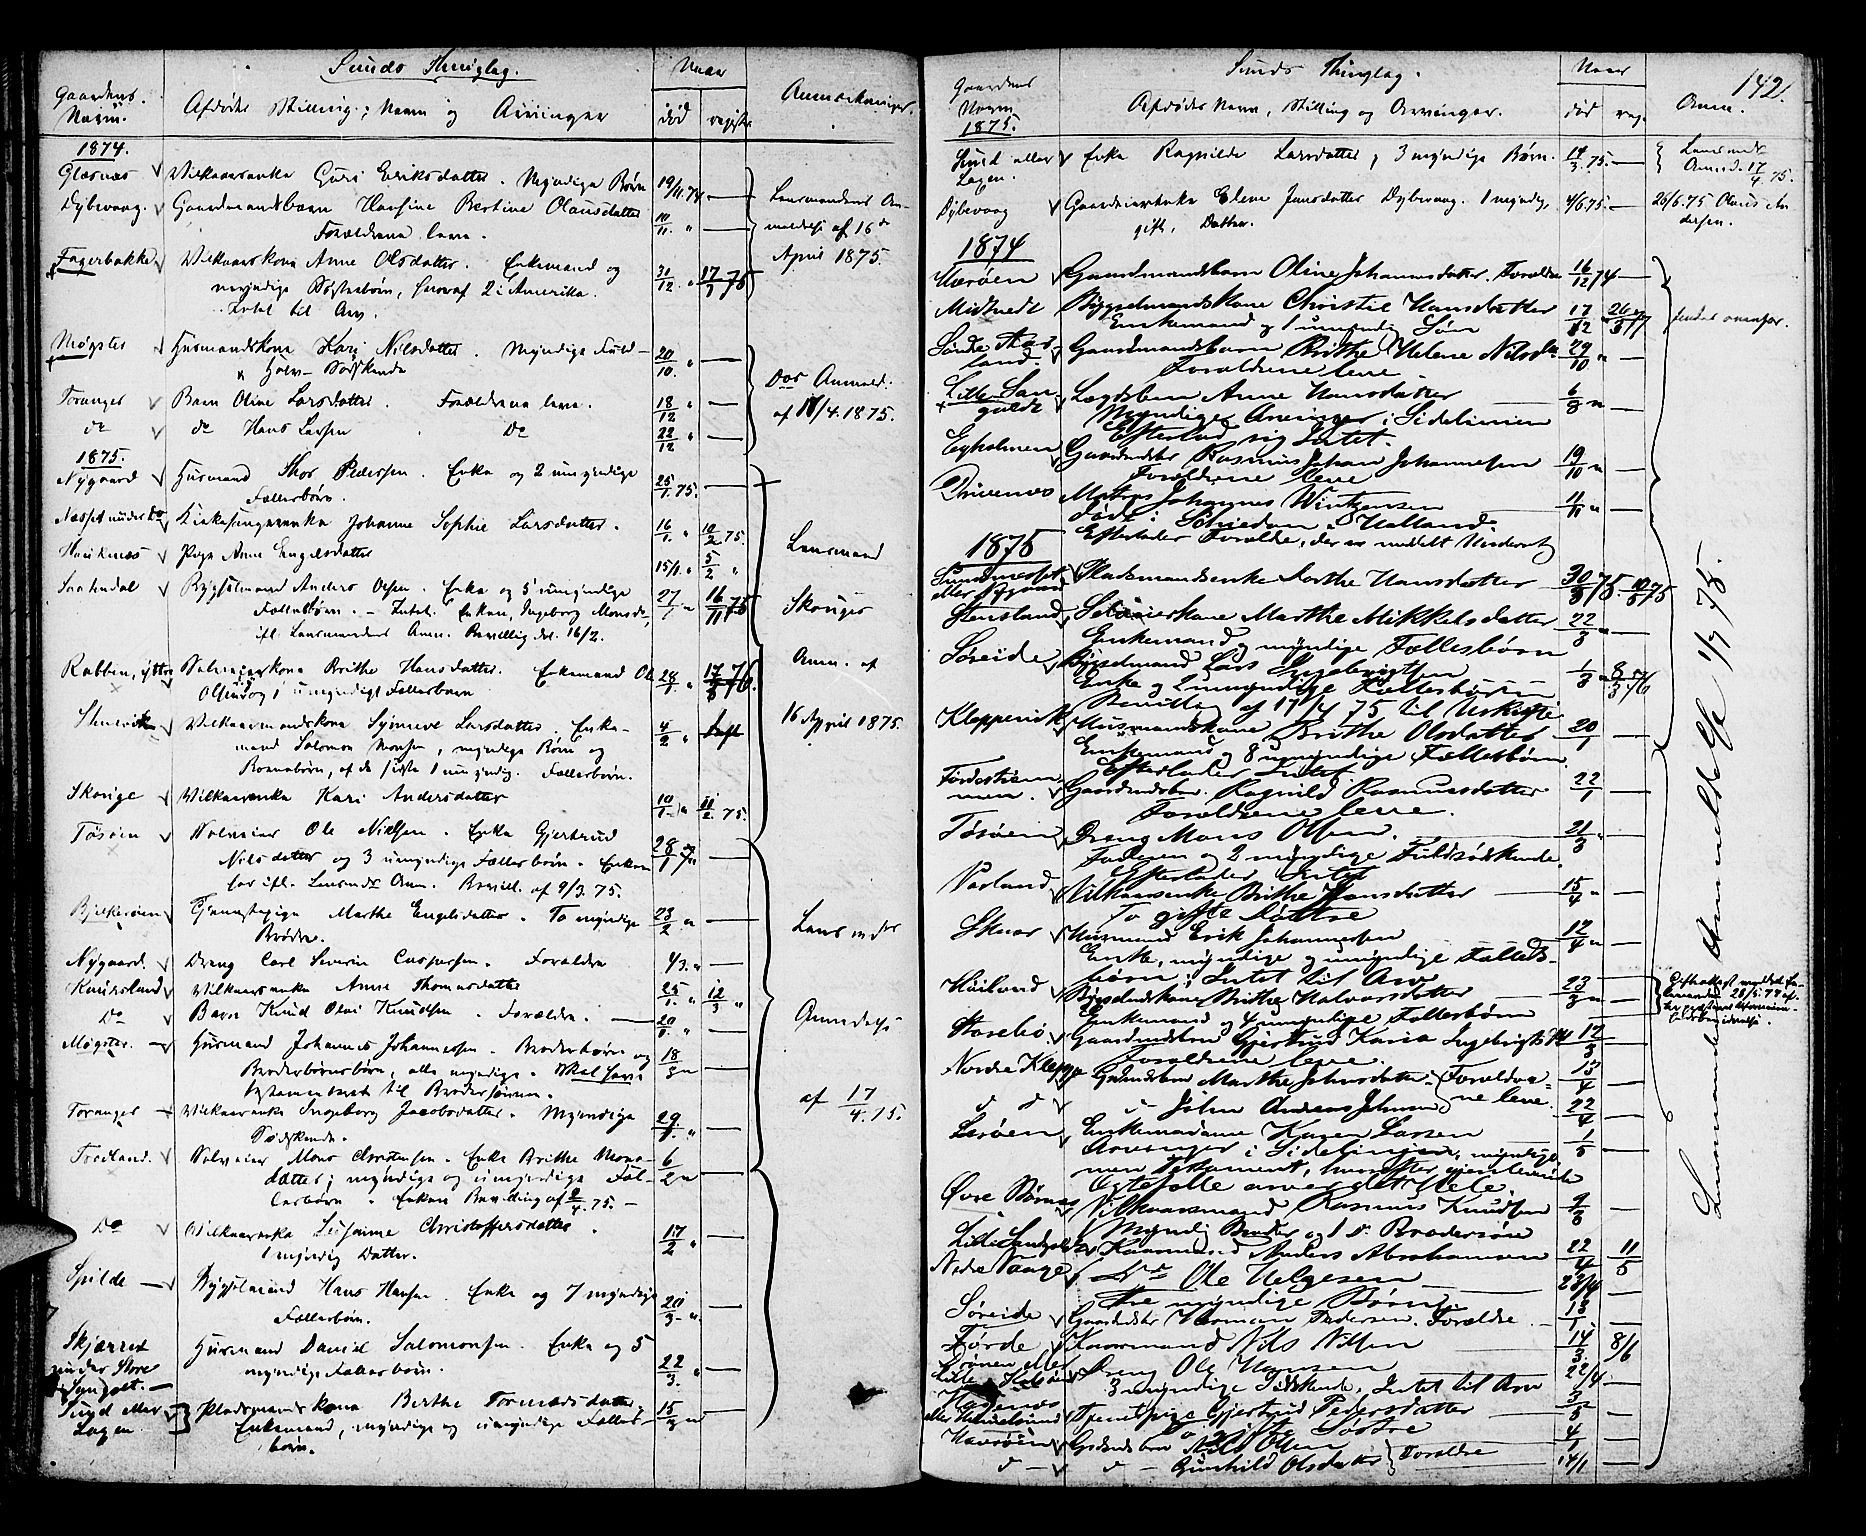 Sunds Thinglag.
Gaardens Navn.
Afdødes Stilling, Navn og Arvinger
Naar
død
registr.
Anmærkninger.
1874.
Glæsnæs Vilkaarsenke Guri Eriksdatter. Myndige Børn 19/11 74 —
Dybevaag. Gaardmandsbarn Hansine Bertine Olausdatter 10/11. " —
Forældrene leve.
Lensmandens An-
meldelse af 16de
April 1875.
Fagerbakke Vilkaarskone Anne Olsdatter. Enkemand og 31/12. " 17/1 75
myndige Søsterbørn, hvoraf 2 i Amerika.
Intet til Arv.
Møgster Husmandskone Kari Nilsdatter. Myndige Fuld- 20/10. " —
og Halv-Sødskende
Toranger Barn Oline Larsdatter. Forældrene leve. 18/12 " —
do do Hans Larsen Do 22/12 " —
Dos Anmeld.
af 17/4. 1875.
1875.
Nygaard Husmand Thor Pedersen. Enke og 2 umyndige 25/1. 75. —
Fællesbørn.
Næsset under Do Kirkesangerenke Johanne Sophie Larsdatter. 16/1. " 10/2 75.
Pige Anne Engelsdatter 15/1. " 5/2 "
Bygselmand Anders Olsen. Enke og 5 umyndige 27/1 " 16/11 75
Fællesbørn. – Intet. Enken, Ingeborg Monsd.,
ifl. Lensmandens Anm. Bevilling dat. 16/2.
Lensmand
Skouges
Anm. af
16 April 1875.
Rabben, ytre Selveierkone Brithe Hansdatter. Enkemand Ole 28/1 " 17/3 76.
Olsen og 1 umyndigt Fællesbarn
Vilkaarmandskone Synneve Larsdatter. Enke- 4/2 "
mand Salomon Monsen, myndige Børn og
Børnebørn, af de sidste 1 umyndig. Fællesbørn.
Skouge Vilkaarsenke Kari Andersdatter 10/1 " 11/2. 75.
Tøsøen Selveier Ole Nielsen. Enke Gjertrud 28/1 75 —
Nilsdatter og 3 umyndige Fællesbørn. Enken
har ifl. Lensmds Anm. Bevill. af 9/3. 75.
Bjelkerøen Tjenestepige Marthe Engelsdatter. To myndige 23/2 " —
Brødre.
Nygaard. Dreng Carl Severin Caspersen. Forældre 4/3. " —
Knarsland Vilkaarsenke Anne Thomasdatter 25/1. " 12/3 "
Do Barn Knud Olai Knudsen. Forældre. 20/1. " —
Møgster. Husmand Johannes Johannessen. Broderbørn og 18/3 " —
Broderbørnsbørn, alle myndige. Skal have
testamenteret til Brodersønnen.
Toranger Vilkaarsenke Ingeborg Jacobsdatter. Myndige 29/1. " —
Sødskende.
Lensmds
Anmeldelse
af 17/4. 75.
Selveier Mons Christensen. Enke Brithe Mons- 6/2 " —
datter; myndige og umyndige Fæl-
lesbørn. Enkens Bevilling af 8/4. 75. –
Do Vilkaarsenke Susanne Christoffersdatter. 17/2 " —
1 myndig Datter.
Spilde Bygselmand Hans Hansen. Enke og 7 myndige 20/3 " —
Fællesbørn.
Skjærret
under Store
Sangolt. Husmand Daniel Salomonsen. Enke og 5 22/3. " —
myndige Fællesbørn.
Sund eller
Lagen. Pladsmandskone Berthe Tormodsdatter, 15/3 " —
Enkemand, myndige og umyndige Fælles-
børn.
142.
Sunds Thinglag.
Gaardens Navn
Afdødes Navn, Stilling og Arvinger.
Naar
død
reg.
Anm.
1875.
Sund eller
Lagen. Enke Ragnilde Larsdatter, 3 myndige Børn. 19/3. 75. — Lensmds
Anmd. 17/4. 75.
Dybevaag Gaardeierenke Elene Jansdatter Dybevaag. 1 myndig, 4/6. 75. — 26/6. 75 Olaus An-
gift, Datter. dersen.
1874
Gaardmandsbarn Oline Johannesdatter. Forældre 16/12 74 —
Midtvedt Bygselmandskone Christie Hansdatter 17/12 " 26/5 77
Enkemand og 1 umyndig Søn
Søndre Gaardmandsbarn Brithe Helene Nilsdr 29/10 " —
Forældrene leve
Lille San-
goldt Lægdslem Anne Hansdatter 6/8 " —
Myndige Arvinger i Sidelinien
Efterlod sig Intet.
Eegholmen Gaardmdsbr Rasmus Johan Johannesen 19/10 " —
Forældrene leve
Drivenes Matros Johannes Wintzensen 4/11 " —
født i Schiedam i Holland.
Efterlader Forældre, der er meddelt Underretg
1875
Sundnesset
eller Nygaard Pladsmandsenke Marthe Hansdatter 30/3 75. 10/5 75
Stensland Selveierkone Marthe Mikkelsdatter 22/3 " —
Enkemand og myndige Fællesbørn
Søreide Bygselmand Lars Ingebrigtsen 1/3 " 8/3 76
Enke og 2 umyndige Fællesbørn
Bevilling af 17/4 75 til Uskifte
Kleppevik Husmandskone Brithe Olsdatter 20/1 —
Enkemand og 8 umyndige Fællesbørn.
Efterlader Intet
Gaardmdsbn. Ragnild Rasmusdatter 22/1 —
Forældrene leve.
Tøsøen Dreng Mons Olsen. 21/3 " —
Faderen og 2 myndige Fuldsødskende.
Efterlader Intet
Vorland Vilkaarsenke Brithe Hansdatter 15/4 " —
To gifte Døttre
Skaar Husmand Erik Johannessen 12/4 " —
Enke, myndige og umyndige Fælles-
børn; Intet til Arv
Høiland Bygselmdskone Brithe Halvorsdatter 23/3 " —
Enkemand og 4 umyndige Fællesbørn
Storebø Gaardmdsbarn Gjertrud Karia Ingebrigtsdtr 17/3 —
Forældrene leve.
Nordre Kleppe Gdmdsbn Marthe Johnsdatter Forældre- 13/4 —
d d d John Andreas Johnsen ne leve. 22/4 —
Lerøen Enkemadame Karen Larsen 1/5 —
Arvinger i Sidelinien, myndige
men Testament, hvorefter gjenlevende
Ægtefælle arver det Hele.
Øvre Vilkaarsmand Rasmus Knudsen 9/3 —
Myndig Broder og 1 d. Brodersøn
Lille Sangolt Kaarmand Anders Abrahamsen 22/4 11/5
Nedre Vaage Do Ole Helgesen 28/4 —
Tre myndige Børn
Søreide Gaardmdsbr Herman Pedersen. Forældre. 13/1 —
Førde Kaarmand Nils Nilsen 14/3. 8/6
Dreng Ole Hansen 22/4 —
3 myndige Sødskende, Intet til Arv
Tjenestepige Gjertrud Pedersdatter 3/5 —
To gifte Søstre
Gdmdsbn Nils Olsen 4/1 —
d d Gunhild Olsdatter Forældre 14/1 —
findes ovenfor.
Lensmandens Anmeldelse 1/7 75.